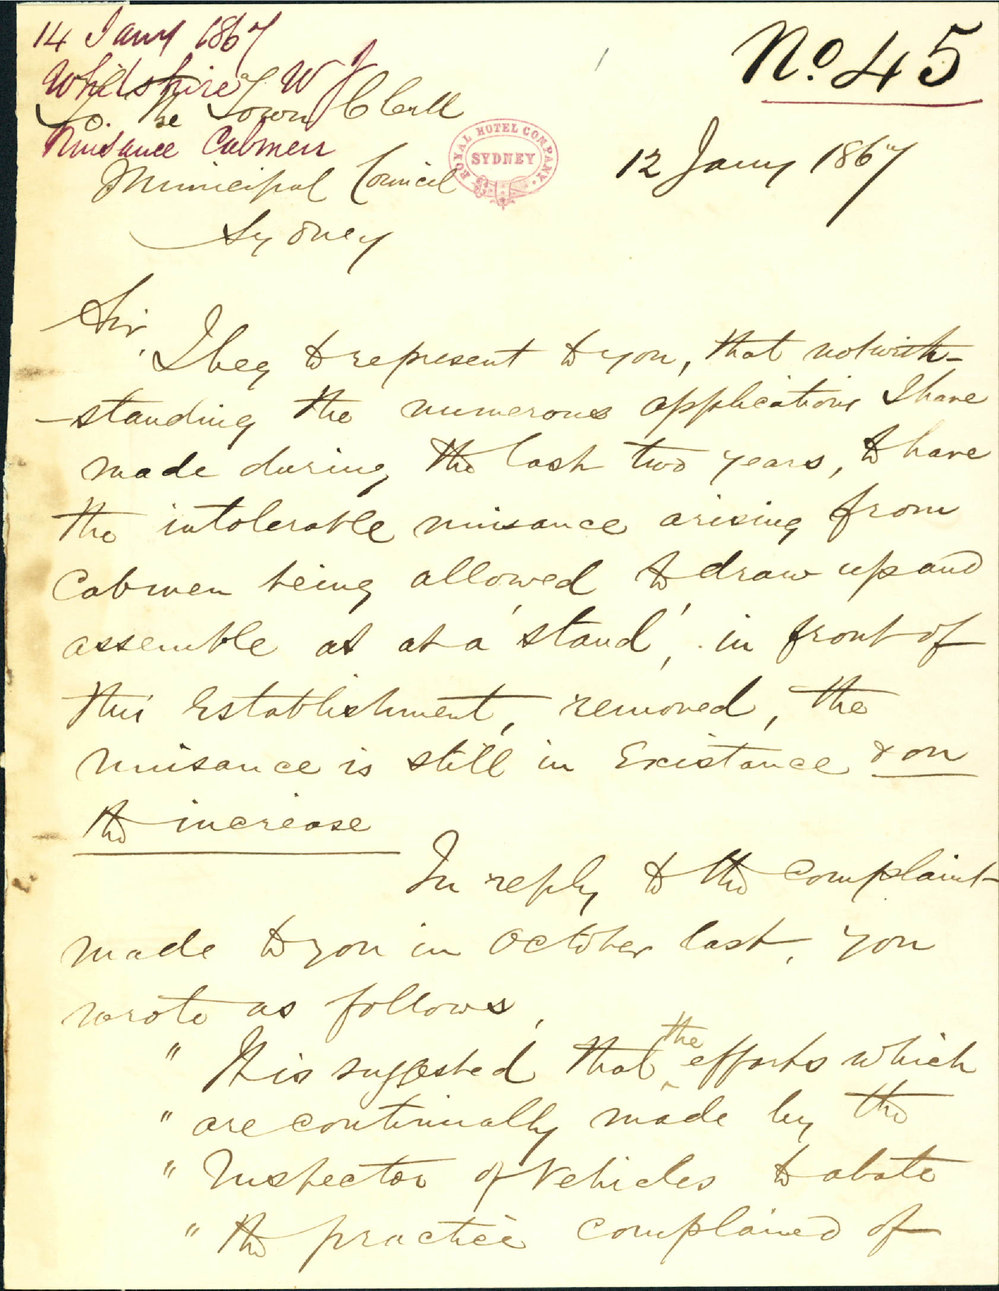 14 Jany 1867
Whilshire W J
Nuisance Cabmen
No. 45
To. The Town Clerk
Municipal Council
Sydney
ROYAL HOTEL COMPANY.
SYDNEY
12 Jany 1867
Sir,
I beg to represent to you, that notwith-
-standing the numerous applications I have
made during the last two years, to have
the intolerable nuisance arising from
cabmen being allowed to draw up and
assemble as at a 'stand', in front of
this Establishment, removed, the
nuisance is still in Existance & on
the increase
In reply to the complaint
made to you in October last, you
wrote as follows,
" It is suggested that the efforts which
" are continually made by the
" Inspector of Vehicles to abate
" the practice complained of